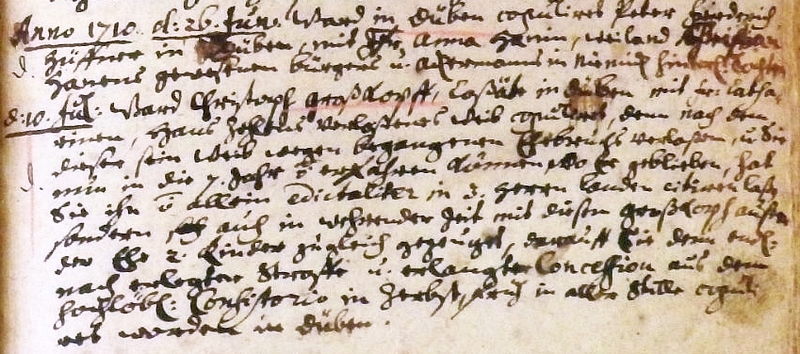 Anno 1710. d. 26. Jun. Ward in Düben copuliret Peter Friedrich
Hüffner in Düben, mit Fr. Anna Hanin, weiland Christian
Hanens gewesenen bürgers u. Ackermanns in Niemick hinterl. Tochter
d. 10. Jul: Ward Christoph Großkopff, Coßäte in Düben mit Fr: Catha-
rinen, Hans verlaßenes Weib copuliret, denn nach dem
dieser sein Weib wegen begangenen Ehebruchs verlaßen, u. Sie
nun in die 7. Jahr erfahren können, wo Er geblieben, hat
Sie ihn allein edictaliter in 3. Herren Landen citiren laßen
sondern sich auch in wehrender Zeit mit diesen Großkopf außer
der Ehe 2. Kinder zugleich gezeuget, darauff Sie denn endl:
nach erlegter Straffe u. erlangter Concession aus dem
Hochlöbl: Consistorio in Zerbst, in aller Stille copuli-
ret worden in Düben.